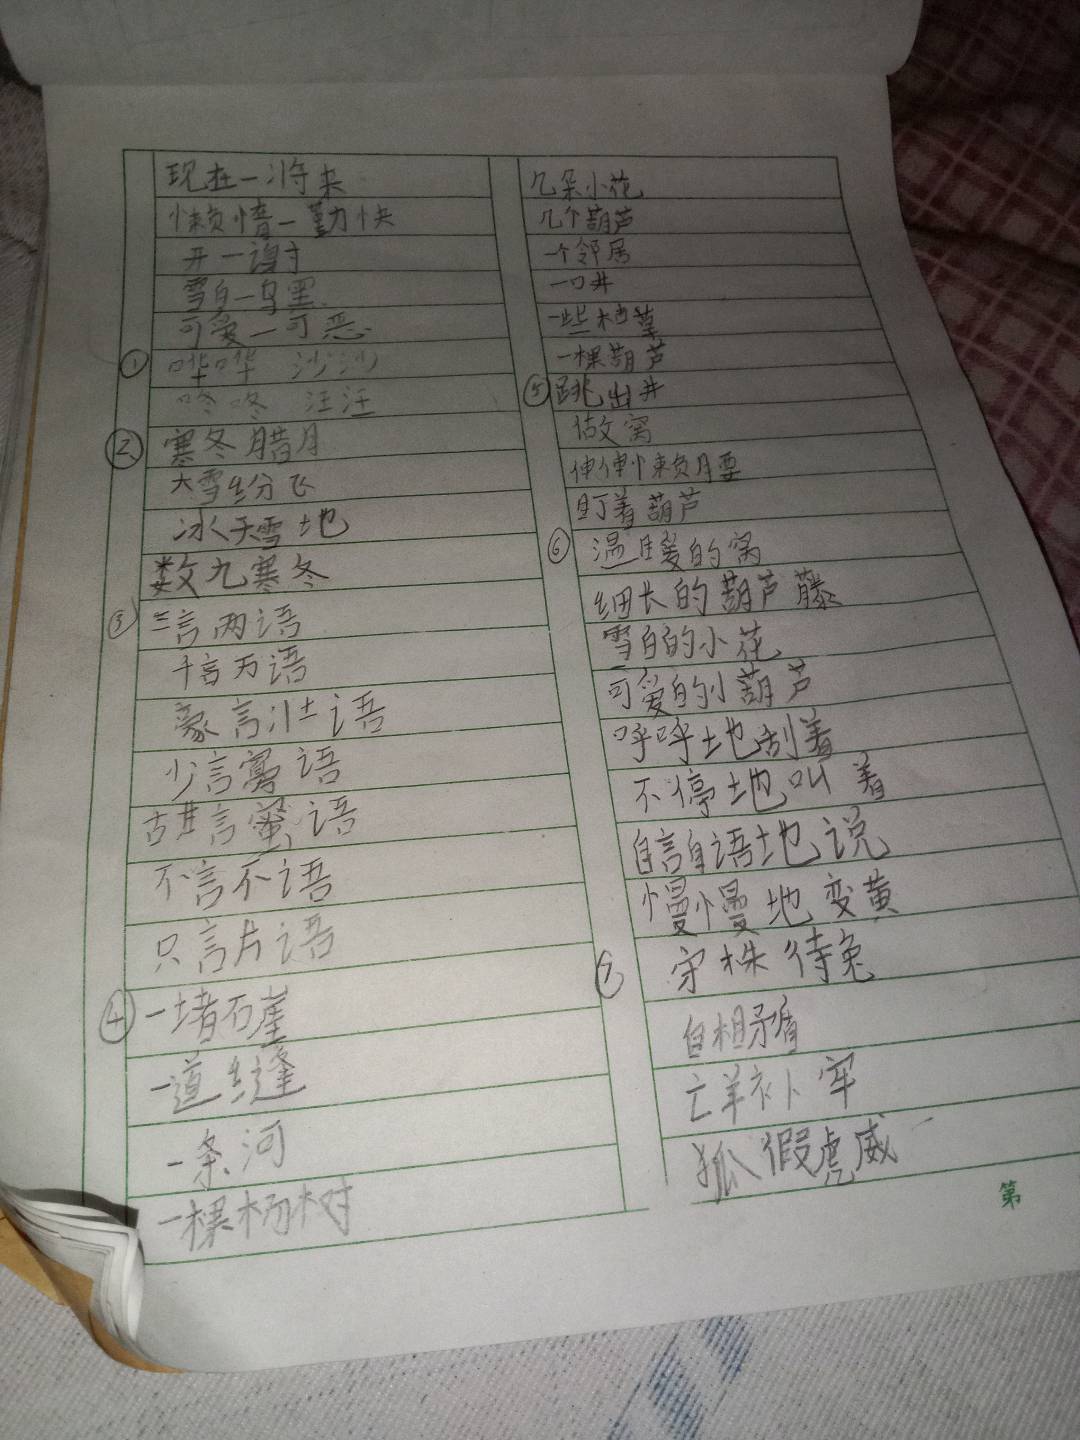 现在一将来
懒惰一勤快
开一谢
雪白一乌黑
可爱一可恶
① 哗哗 沙沙
咚咚 汪汪
② 寒冬腊月
大雪纷飞
冰天雪地
数九寒冬
③ 三言两语
千言万语
豪言壮语
少言寡语
甜言蜜语
不言不语
只言片语
④ 一堵石崖
一道缝
一条河
一棵杨树
几朵小花
几个葫芦
一个邻居
一口井
一些柄草
一棵葫芦
⑤ 跳出井
做窝
伸伸懒腰
盯着葫芦
⑥ 温暖的窝
细长的葫芦藤
雪白的小花
可爱的小葫芦
呼呼地刮着
不停地叫着
自言自语地说
慢慢地变黄
⑦ 守株待兔
自相矛盾
亡羊补牢
狐假虎威
第